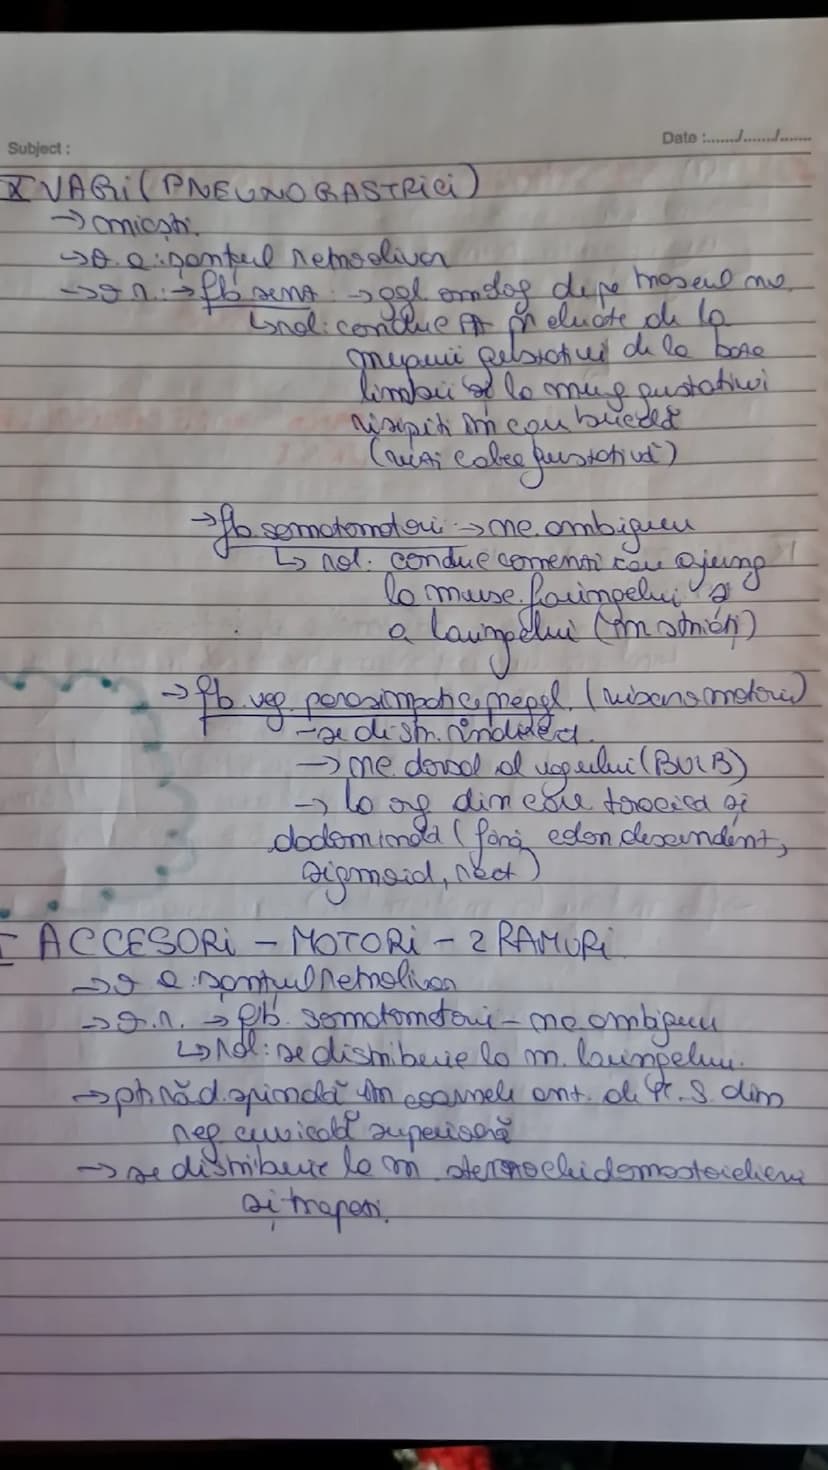 Date :....../....../......
Subject :
X VAGI (PNEUNOGASTRICI)
→ micști.
→ o. a: șanțul retroolivar
→ o r.: → fb senz: → ggl. omolog de pe traseul nv.
↳ rol: conduc PA de la
mugurii gustativi de la baza
limbii și la mug gustativi
risipiți în cav bucală
(nici calea gustativă)
→ fb. somatomotori → nc. ambiguu
↳ rol: conduc comenzi care ajung
la musc. faringelui și
a laringelui (m striați)
→ fb. veg. parasimpatice preggl. (visceromotorii)
- se distr. indirect.
→ nc. dorsal al vagului (BULB)
→ la org din cav toracică și
abdominală (fără colon descendent,
sigmoid, rect)
I ACCESORI - MOTORI - 2 RAMURI
→ o a: șanțul retroolivar
→ o.r. → fb. somatomotori - nc. ambiguu
↳ rol: se distribuie la m. laringelui.
→ pt răd. spinală în coarnele ant. ale S. din
reg cervicală superioară
→ se distribuie la m. sternocleidomastoidieni
și trapezi.